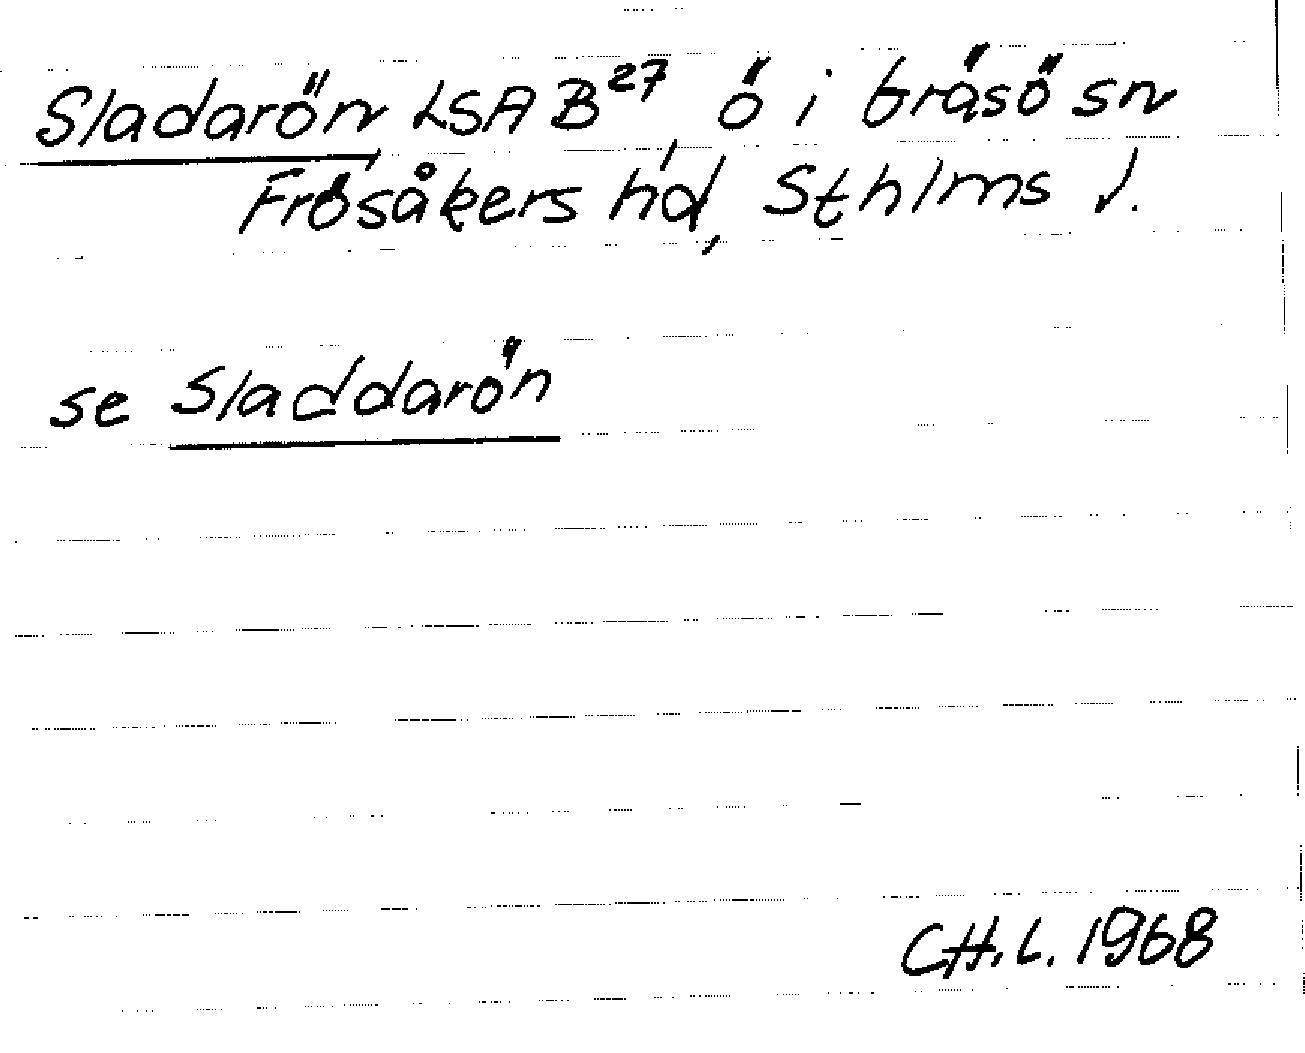 Sladarön LSA B27 ö i Gräsö sn
Frösåkers hd, Sthlms l.
se Sladdarön
CH.L. 1968